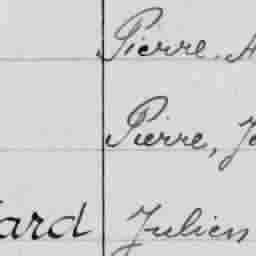 Pierre, A
Pierre, Jo
ard Julien